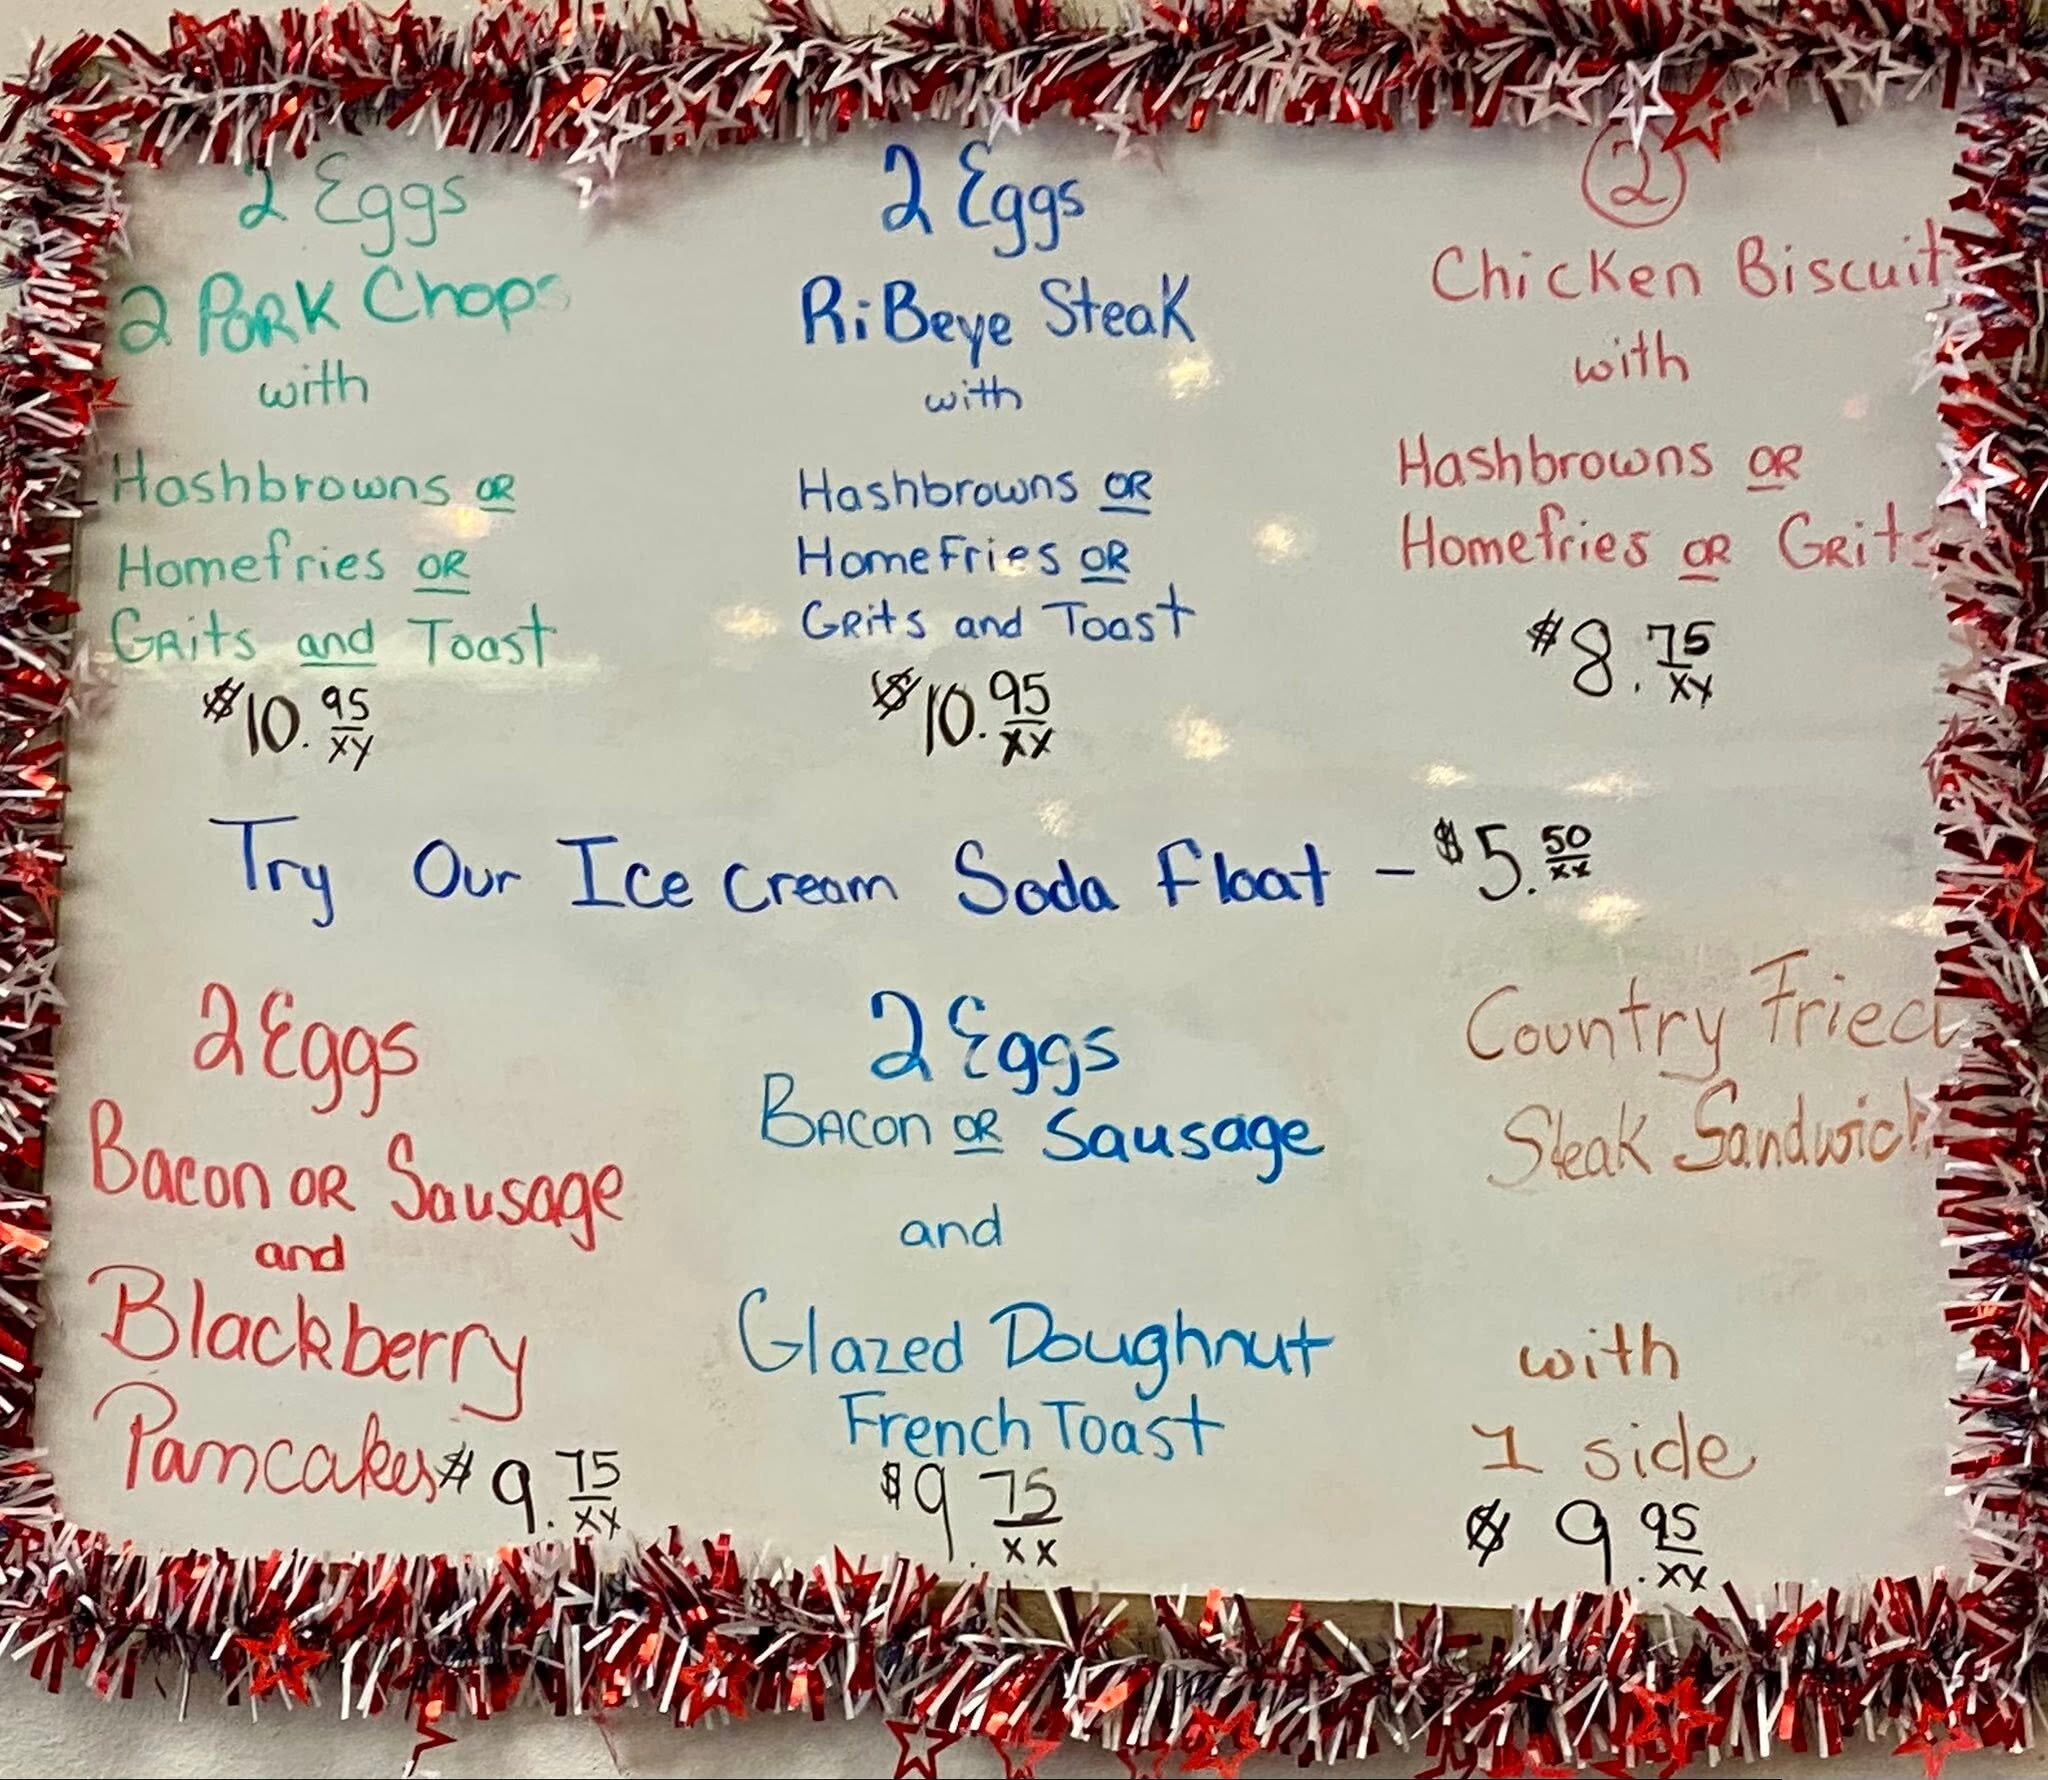 2 Eggs
2 Pork Chops
with
Hashbrowns OR
Homefries OR
Grits and Toast
$10.95/xx
2 Eggs
RiBeye Steak
with
Hashbrowns OR
HomeFries OR
Grits and Toast
$10.95/xx
2
Chicken Biscuits
with
Hashbrowns OR
Homefries OR Grits
$8.75/xx
Try Our Ice Cream Soda Float - $5.50/xx
2 Eggs
Bacon OR Sausage
and
Blackberry
Pancakes $9.75/xx
2 Eggs
Bacon OR Sausage
and
Glazed Doughnut
French Toast
$9.75/xx
Country Fried
Steak Sandwich
with
1 side
$9.95/xx